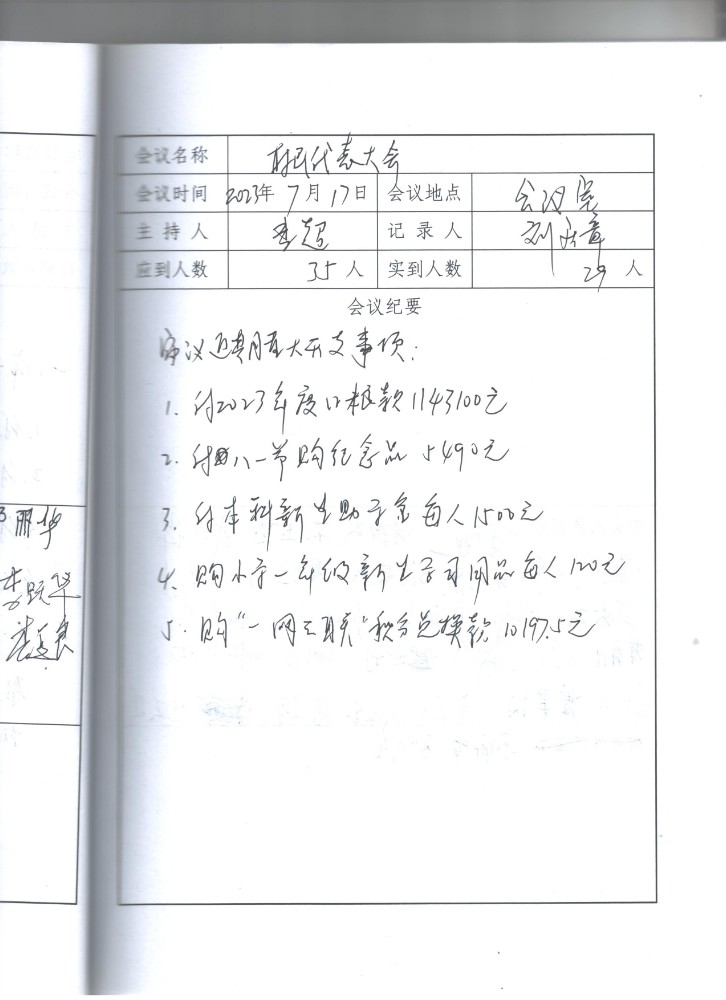 丽华
李跃华
会议名称 村民代表大会
会议时间 2023年7月17日 会议地点 会议室
主持人 李超 记录人 刘
应到人数 35人 实到人数 29人
会议纪要
审议近期重大开支事项：
1. 付2023年度口粮款1143100元
2. 付八一节购纪念品5490元
3. 付本科新生助学金每人1500元
4. 购小学一年级新生学习用品每人120元
5. 购“一网三联”积分兑换款10197.5元